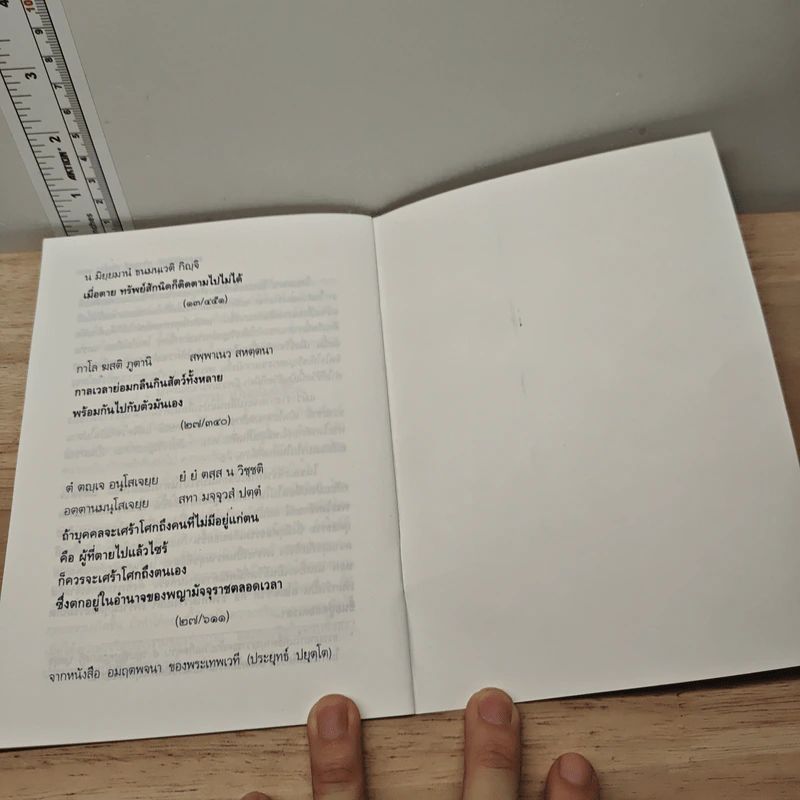 น มิยฺยมานํ ธนมนฺเวติ กิญฺจิ
เมื่อตาย ทรัพย์สักนิดก็ติดตามไปไม่ได้
(๑๓/๔๕๑)
กาโล ฆสติ ภูตานิ สพฺพาเนว สหตฺตนา
กาลเวลาย่อมกลืนกินสัตว์ทั้งหลาย
พร้อมกันไปกับตัวมันเอง
(๒๗/๓๔๐)
ตํ ตญฺเจ อนุโสเจยฺย ยํ ยํ ตสฺส น วิชฺชติ
อตฺตานมนุโสเจยฺย สทา มจฺจุวสํ ปตฺตํ
ถ้าบุคคลจะเศร้าโศกถึงคนที่ไม่มีอยู่แก่ตน
คือ ผู้ที่ตายไปแล้วไซร้
ก็ควรจะเศร้าโศกถึงตนเอง
ซึ่งตกอยู่ในอำนาจของพญามัจจุราชตลอดเวลา
(๒๗/๖๑๑)
จากหนังสือ อมฤตพจนา ของพระเทพเวที (ประยุทธ์ ปยุตฺโต)